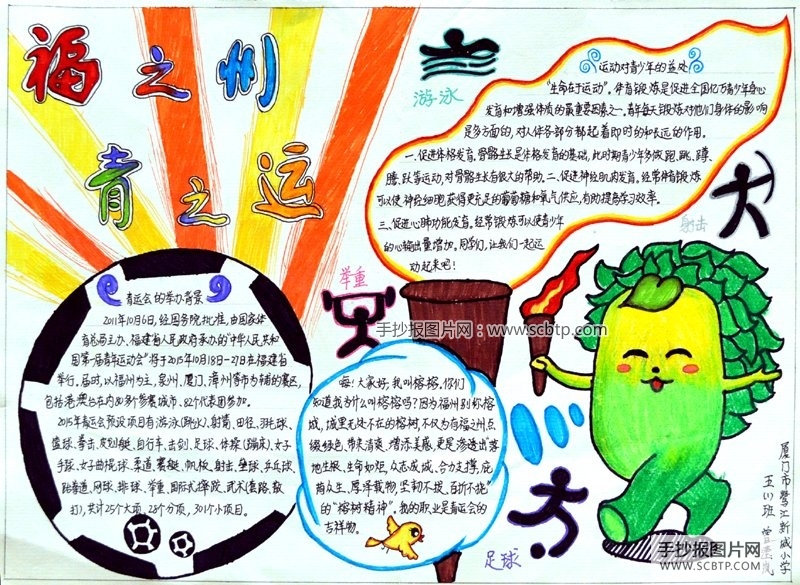 福之州
青之运
游泳
运动对青少年的益处
“生命在于运动”。体育锻炼是促进全国亿万青少年身心
发育和增强体质的最重要因素之一。青年每天锻炼对他们身体的影响
是多方面的,对人体各部分都起着即时的和长远的作用。
一、促进体格发育。骨骼生长是体格发育的基础,此时期青少年多做跑、跳、蹲、
腾、跃等运动,对骨骼生长有很大的帮助。二、促进神经肌肉发育。经常体育锻炼
可以使神经细胞获得更充足的葡萄糖和氧气供应,有助提高学习效率。
三、促进心肺功能发育。经常锻炼可以使青少年
的心输出量增加。同学们,让我们一起运
动起来吧!
射击
举重
青运会的举办背景
2011年10月6日,经国务院批准,由国家体
育总局主办、福建省人民政府承办的“中华人民共和
国第一届青年运动会”将于2015年10月18日-27日在福建省
举行。届时,以福州为主,泉州、厦门、漳州等市为辅的赛区,
包括港澳台在内80多个参赛城市、82个代表团参加。
2015年青运会预设项目有游泳(跳水)、射箭、田径、羽毛球、
篮球、拳击、皮划艇、自行车、击剑、足球、体操(蹦床)、女子
手球、女子曲棍球、柔道、赛艇、帆板、射击、垒球、乒乓球、
跆拳道、网球、排球、举重、国际式摔跤、武术(套路、散
打),共计25个大项、28个分项、301个小项目。
手抄报图片网:www.scbtp.com
嗨!大家好,我叫榕榕。你们
知道我为什么叫榕榕吗?因为福州别称榕
城,城里无处不在的榕树,不仅为有福之州点
缀绿色、带来清爽、增添美感,更是渗透出落
地生根、生命如炬、众志成城、合力支撑、庇
荫众生、厚泽载物,坚韧不拔、百折不挠”
的“榕树精神”。我的职业是青运会的
吉祥物。
足球
厦门市鹭江新城小学
五(1)班
手抄报图片网
WWW.SCBTP.COM